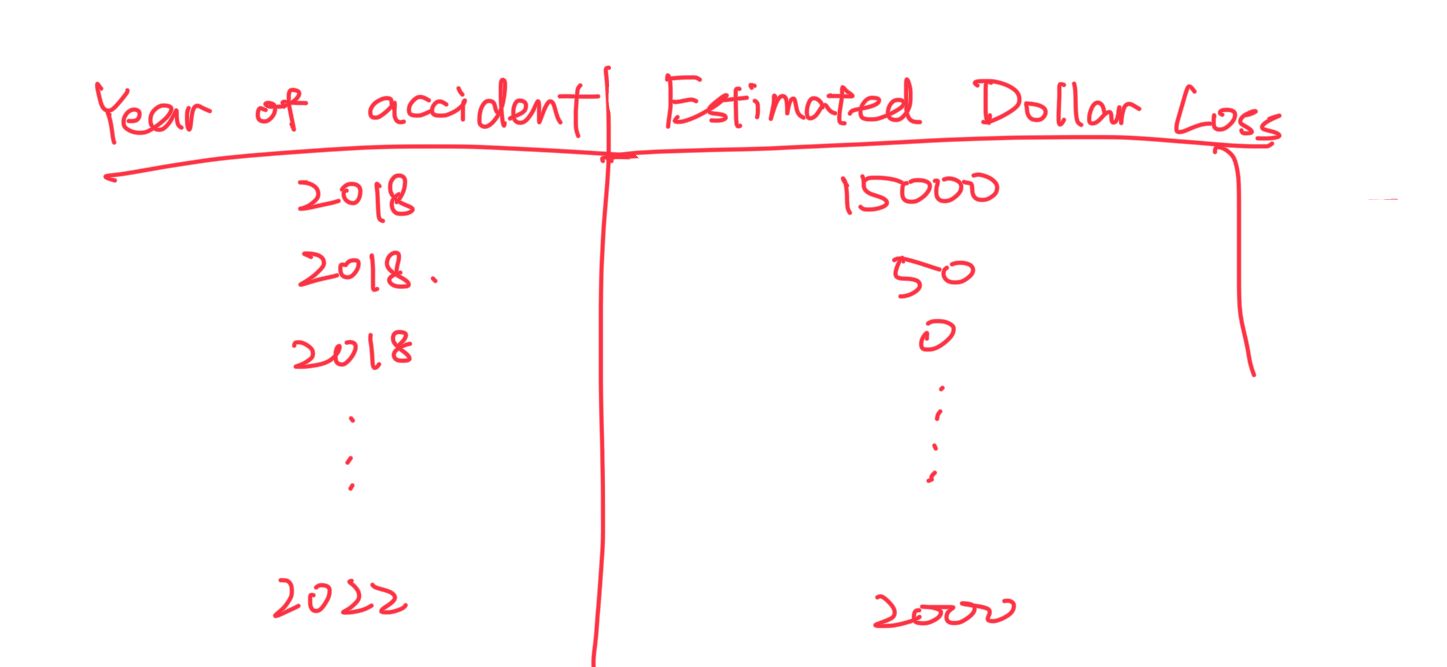 Year of accident Estimated Dollar Loss
2018 15000
2018. 50
2018 0
2022 2000